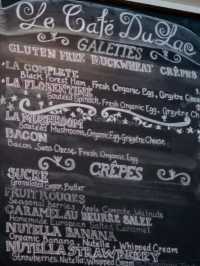 Le Café Du Lac
GALETTES
GLUTEN FREE BUCKWHEAT CRÊPES
LA COMPLETE
Black Forest Ham, Fresh Organic Egg, Gruyère Cheese
LA FLORENTINE
Sauteed Spinach, Fresh Organic Egg, Gruyère Cheese
LA
Sauteed Mushrooms, Organic Egg, Gruyère Cheese
BACON
Bacon, Swiss Cheese, Fresh Organic Egg
CRÊPES
SUCRE
Granulated Sugar, Butter
FRUIT ROUGES
Seasonal Berries, Apple Compote, Walnuts
CARAMEL AU BEURRE SALÉ
Homemade Caramel, Salted Caramel
NUTELLA BANANA
Organic Banana, Nutella, Whipped Cream
NUTELLA STRAWBERRY
Strawberries, Nutella, Whipped Cream